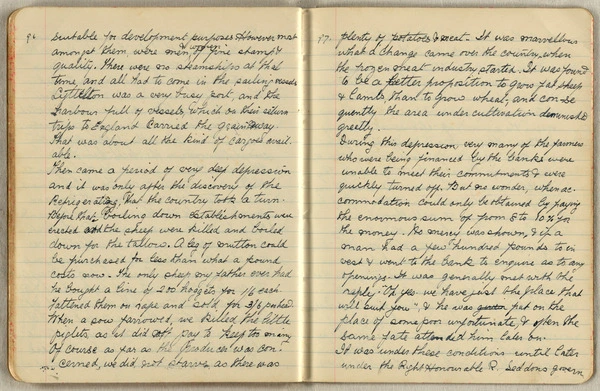 86
suitable for development purposes However most
amongst them, were men, & women of fine stamp &
quality. There were no steamships at that
time, and all had to come in the sailing vessels
Lyttelton was a very busy port, and the
harbour full of vessels, which on their return
trips to England carried the grain away.
That was about all the kind of cargoes avail-
able.
Then came a period of very deep depression
and it was only after the discovery of the
Refrigerating, that the country took a turn.
Before that boiling down establishments were
erected and the sheep were killed and boiled
down for the tallow. A leg of mutton could
be purchased for less than what a pound
costs now. The only sheep my father ever had
he bought a line of 200 hoggets for 1/6 each.
Fattened them on rape and sold for 3/6 picked
When a sow farrowed, we killed the little
piglets, as it did not pay to keep too many
Of course as far as the Producer was con-
cerned, we did not starve as there was
87.
plenty of potatoes & meat. It was marvellous
what a change came over the country when
the frozen meat industry started. It was found
to be a better proposition to grow fat sheep
& lambs, than to grow wheat, and conse
quently the area under cultivation diminished
greatly.
During this depression very many of the farmers
who were being financed by the banks were
unable to meet their commitments & were
quickly turned off. But no wonder, when ac-
commodation could only be obtained by paying
the enormous sum of from 8 to 10% for
the money. No mercy was shown, & if a
man had a few hundred pounds to in
vest & went to the bank to enquire as to any
openings. It was generally met with the
reply. "Oh yes. we have just the place that
will suit you", & he was put on the
place of some poor unfortunate, & often the
same fate attended him later on.
It was under these conditions until later
under the Right Honourable R. Seddons govern